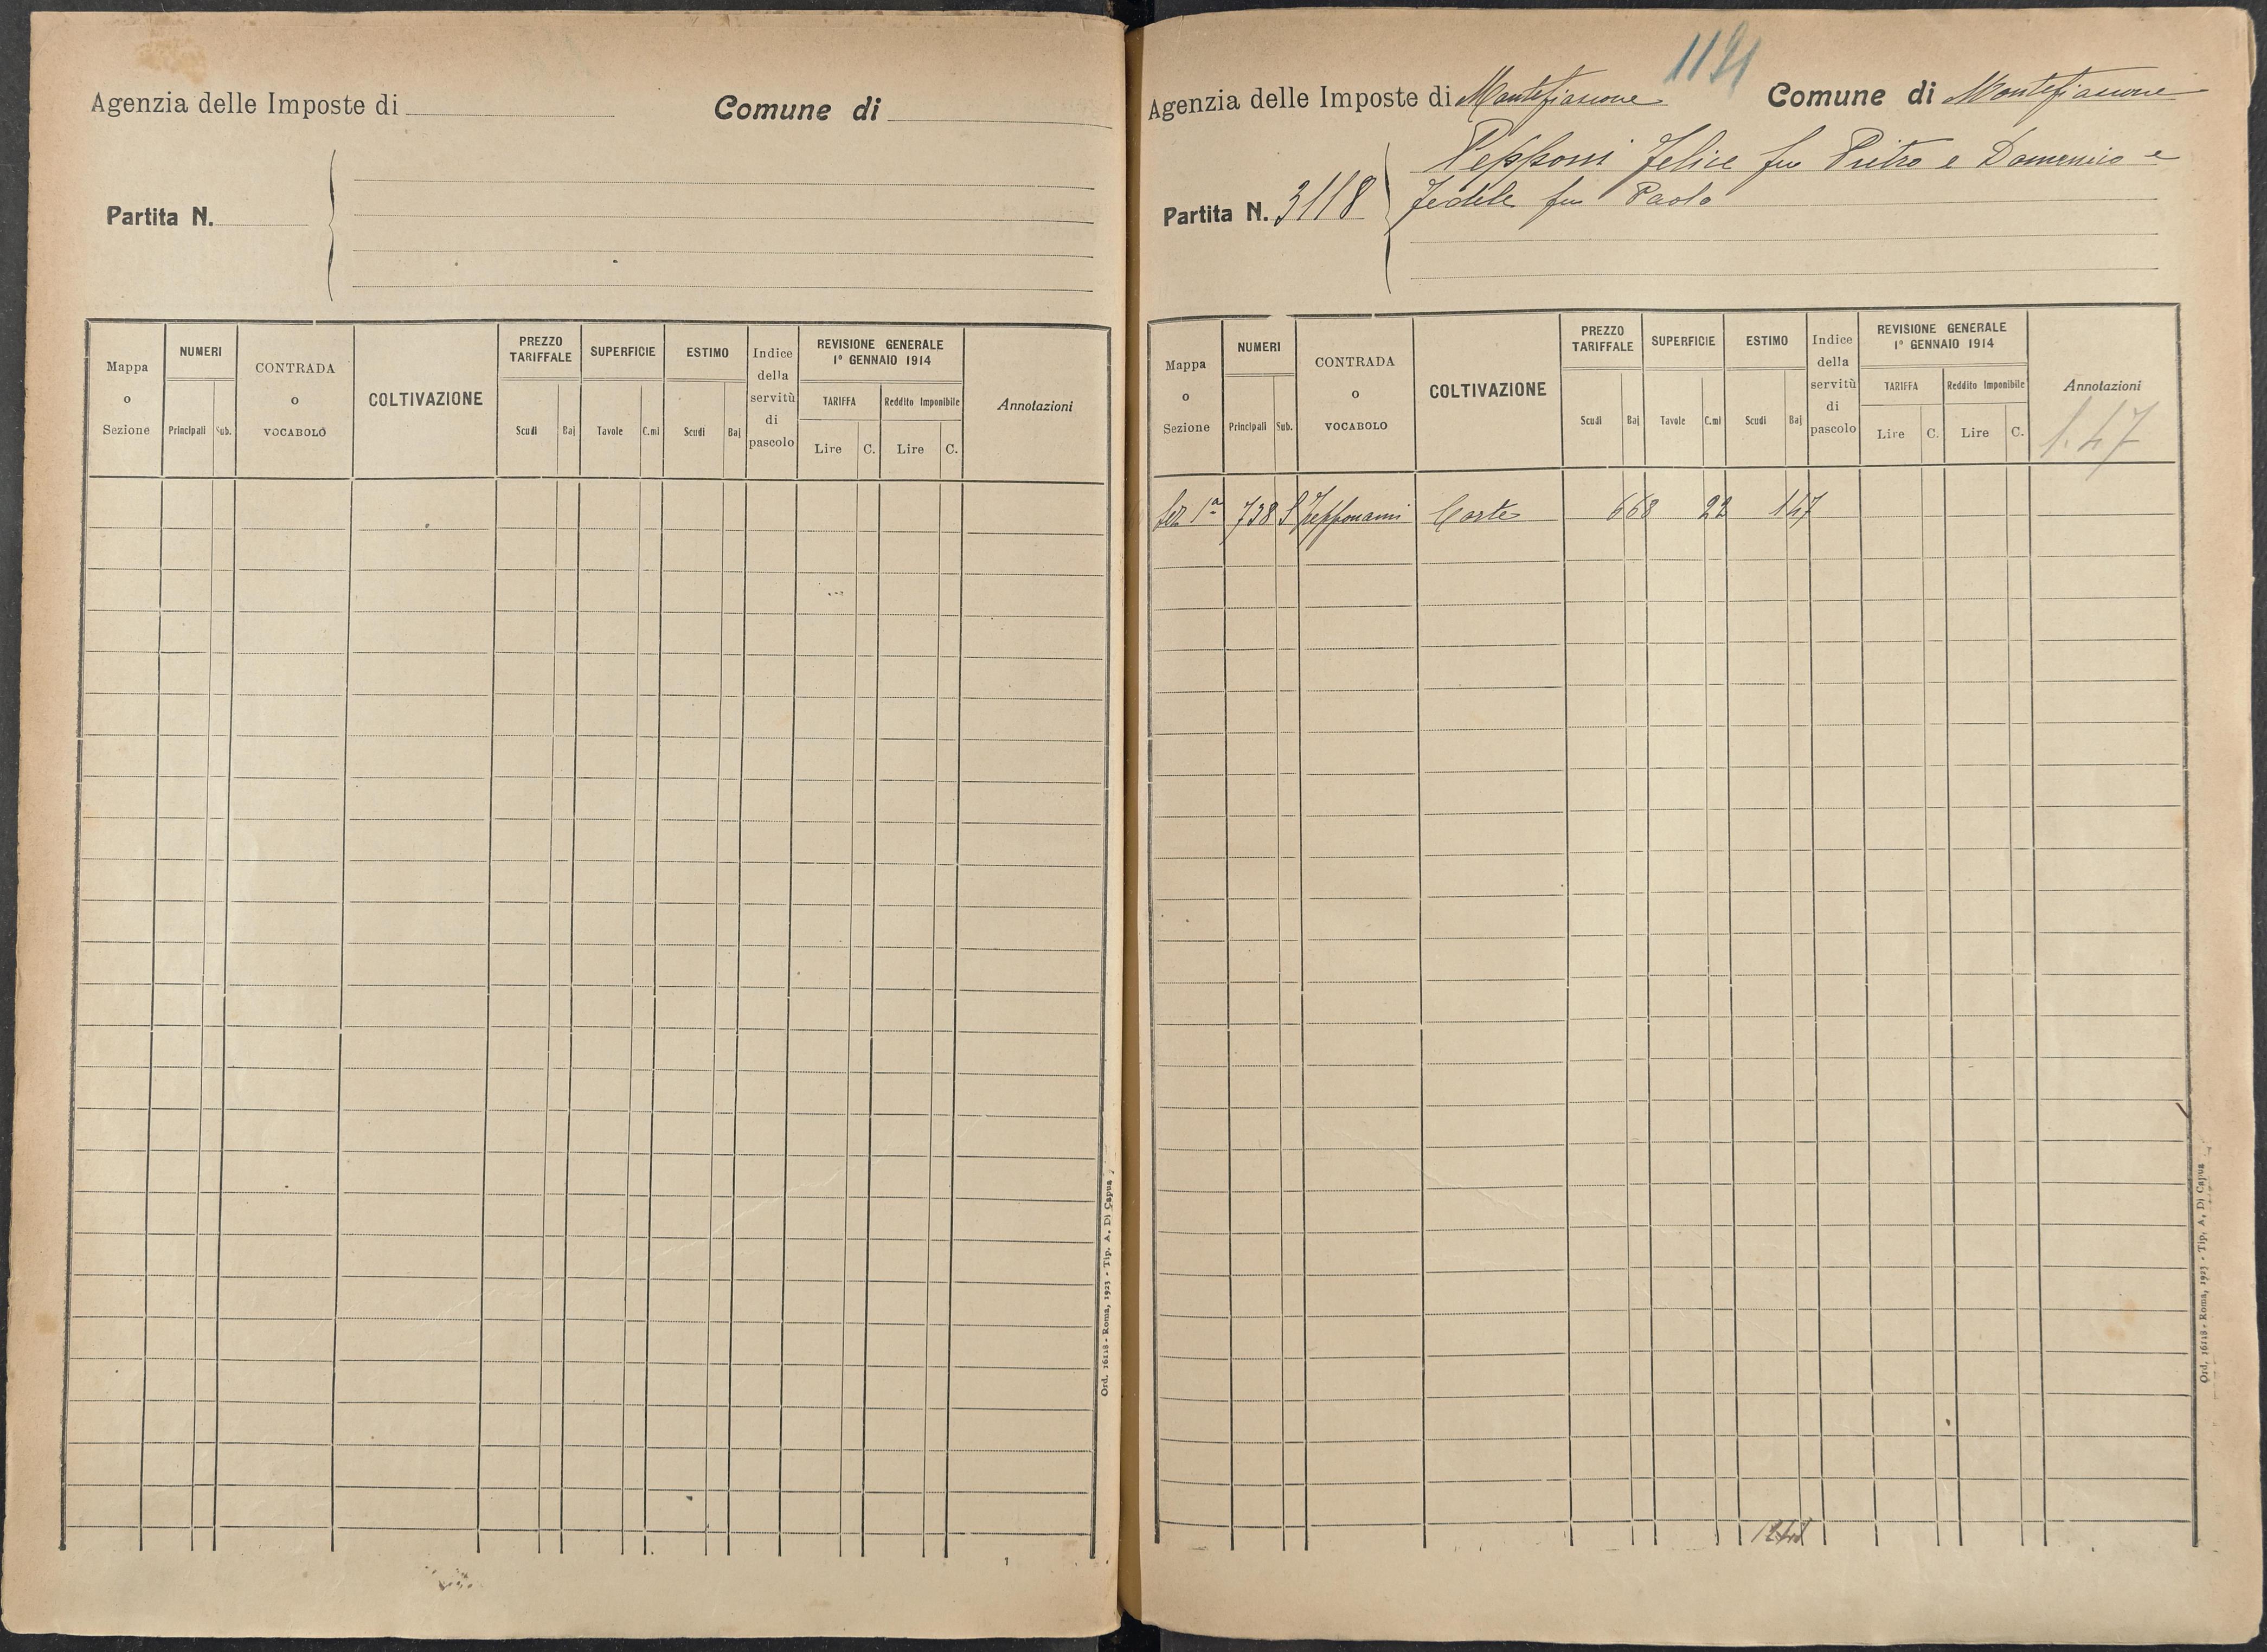 Agenzia delle Imposte di
Comune di
Partita N.
Mappa o Sezione
NUMERI
Principali
Sub.
CONTRADA o VOCABOLO
COLTIVAZIONE
PREZZO TARIFFALE
Scudi
Baj
SUPERFICIE
Tavole
C.mi
ESTIMO
Scudi
Baj
Indice della servitù di pascolo
REVISIONE GENERALE
1° GENNAIO 1914
TARIFFA
Lire
C.
Reddito Imponibile
Lire
C.
Annotazioni
Ord. 16118 - Roma, 1923 - Tip. A. Di Capua
1
Agenzia delle Imposte di Montefiascone
Comune di Montefiascone
Partita N. 3118
Pepponi Felice fu Pietro e Domenico e
Fedele fu Paolo
Mappa o Sezione
NUMERI
Principali
Sub.
CONTRADA o VOCABOLO
COLTIVAZIONE
PREZZO TARIFFALE
Scudi
Baj
SUPERFICIE
Tavole
C.mi
ESTIMO
Scudi
Baj
Indice della servitù di pascolo
REVISIONE GENERALE
1° GENNAIO 1914
TARIFFA
Lire
C.
Reddito Imponibile
Lire
C.
Annotazioni
1.47
Sez 1ª 738 Zepponami Corte 668 22 147
Ord. 16118 - Roma, 1923 - Tip. A. Di Capua